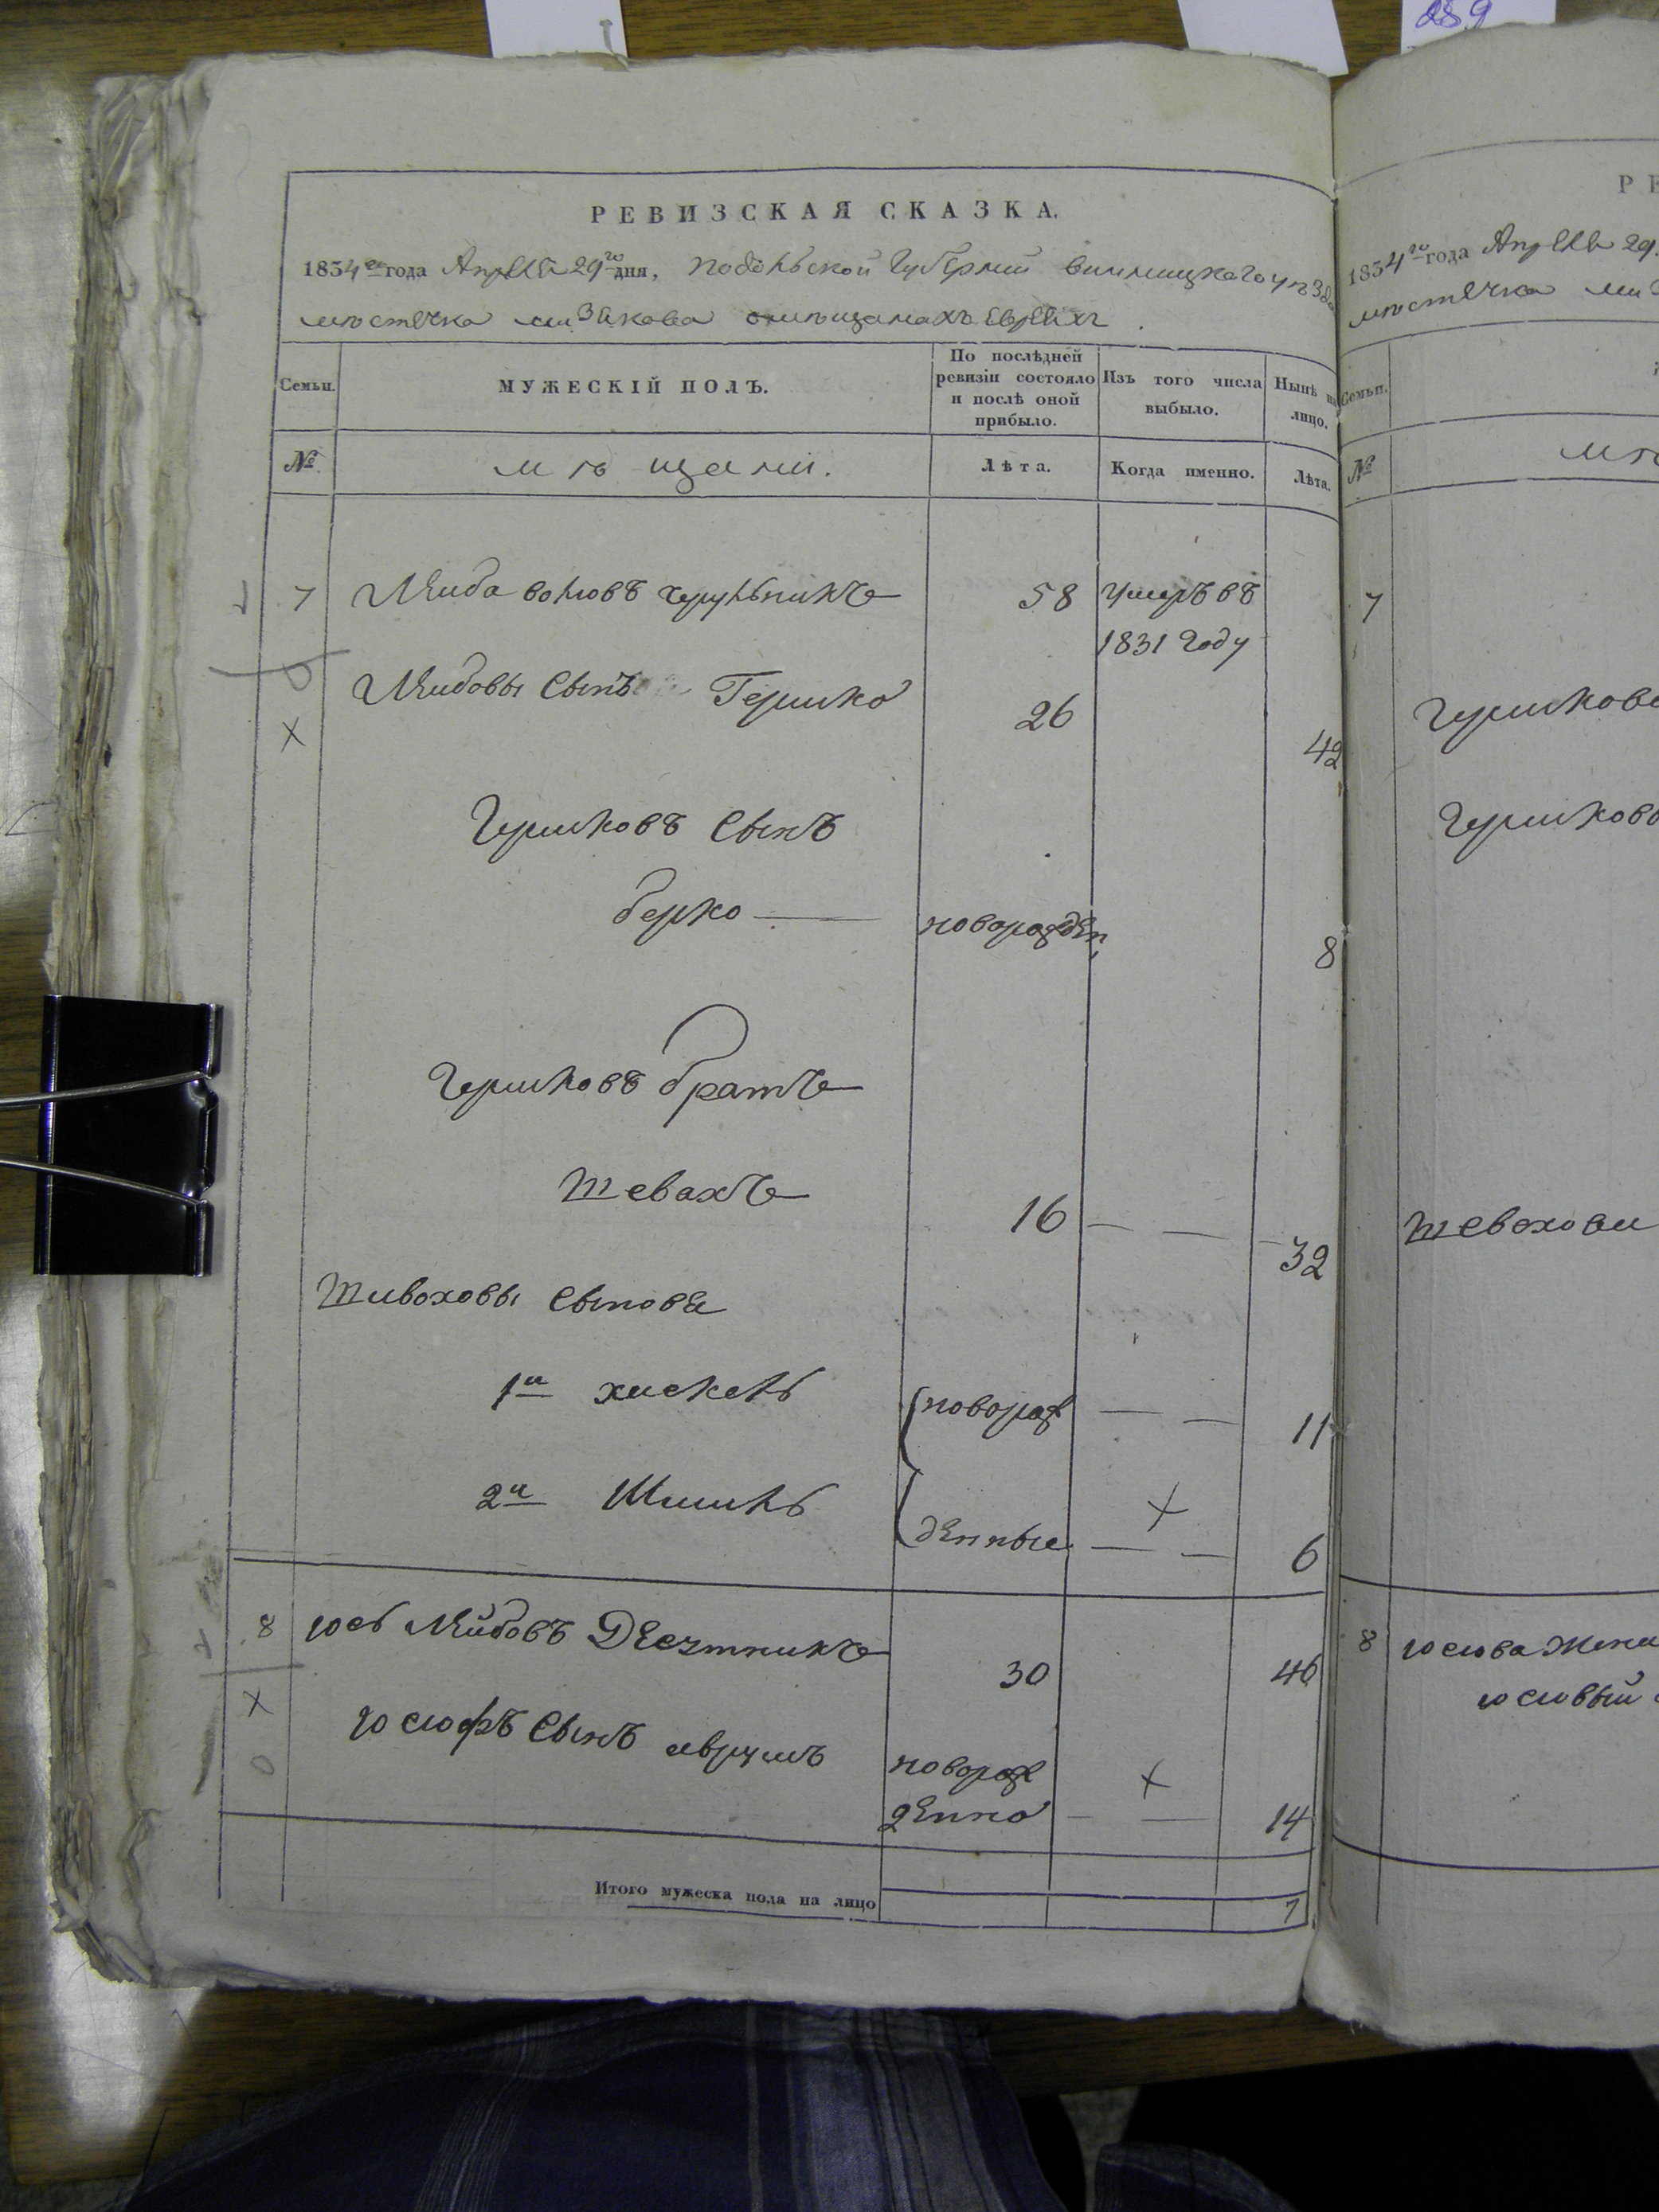 289
РЕВИЗСКАЯ СКАЗКА.
1834го года Апреля 29го дня, Подольской Губернии винницкаго уезда
местечка мизякова о мещанахъ Евреяхъ
Семьи.
МУЖЕСКІЙ ПОЛЪ.
По послѣдней ревизіи состояло и послѣ оной прибыло.
Изъ того числа выбыло.
Нынѣ на лицо.
№
мѣщани.
Лѣта.
Когда именно.
Лѣта.
7 Лейба волковъ 58 умеръ въ
1831 Году
Лейбовы Сынъ Гершко 26 42
Гершковъ Сынъ
берко новорожден 8
Гершковъ братъ
Шевахъ 16 32
Шивоховы Сынове
1й хаскель новорож 11
2й Шмиль денные 6
8 юсь Лейбовъ Десятникъ 30 46
юсюфъ Сынъ аврумъ новорож
денно 14
Итого мужеска пола на лицо 7
РЕ
1834го года Апреля 29
местечка ми
Семьи.
№
7
Гершкова
Гершково
Шевохови
8 юсюва Жена
юсювый